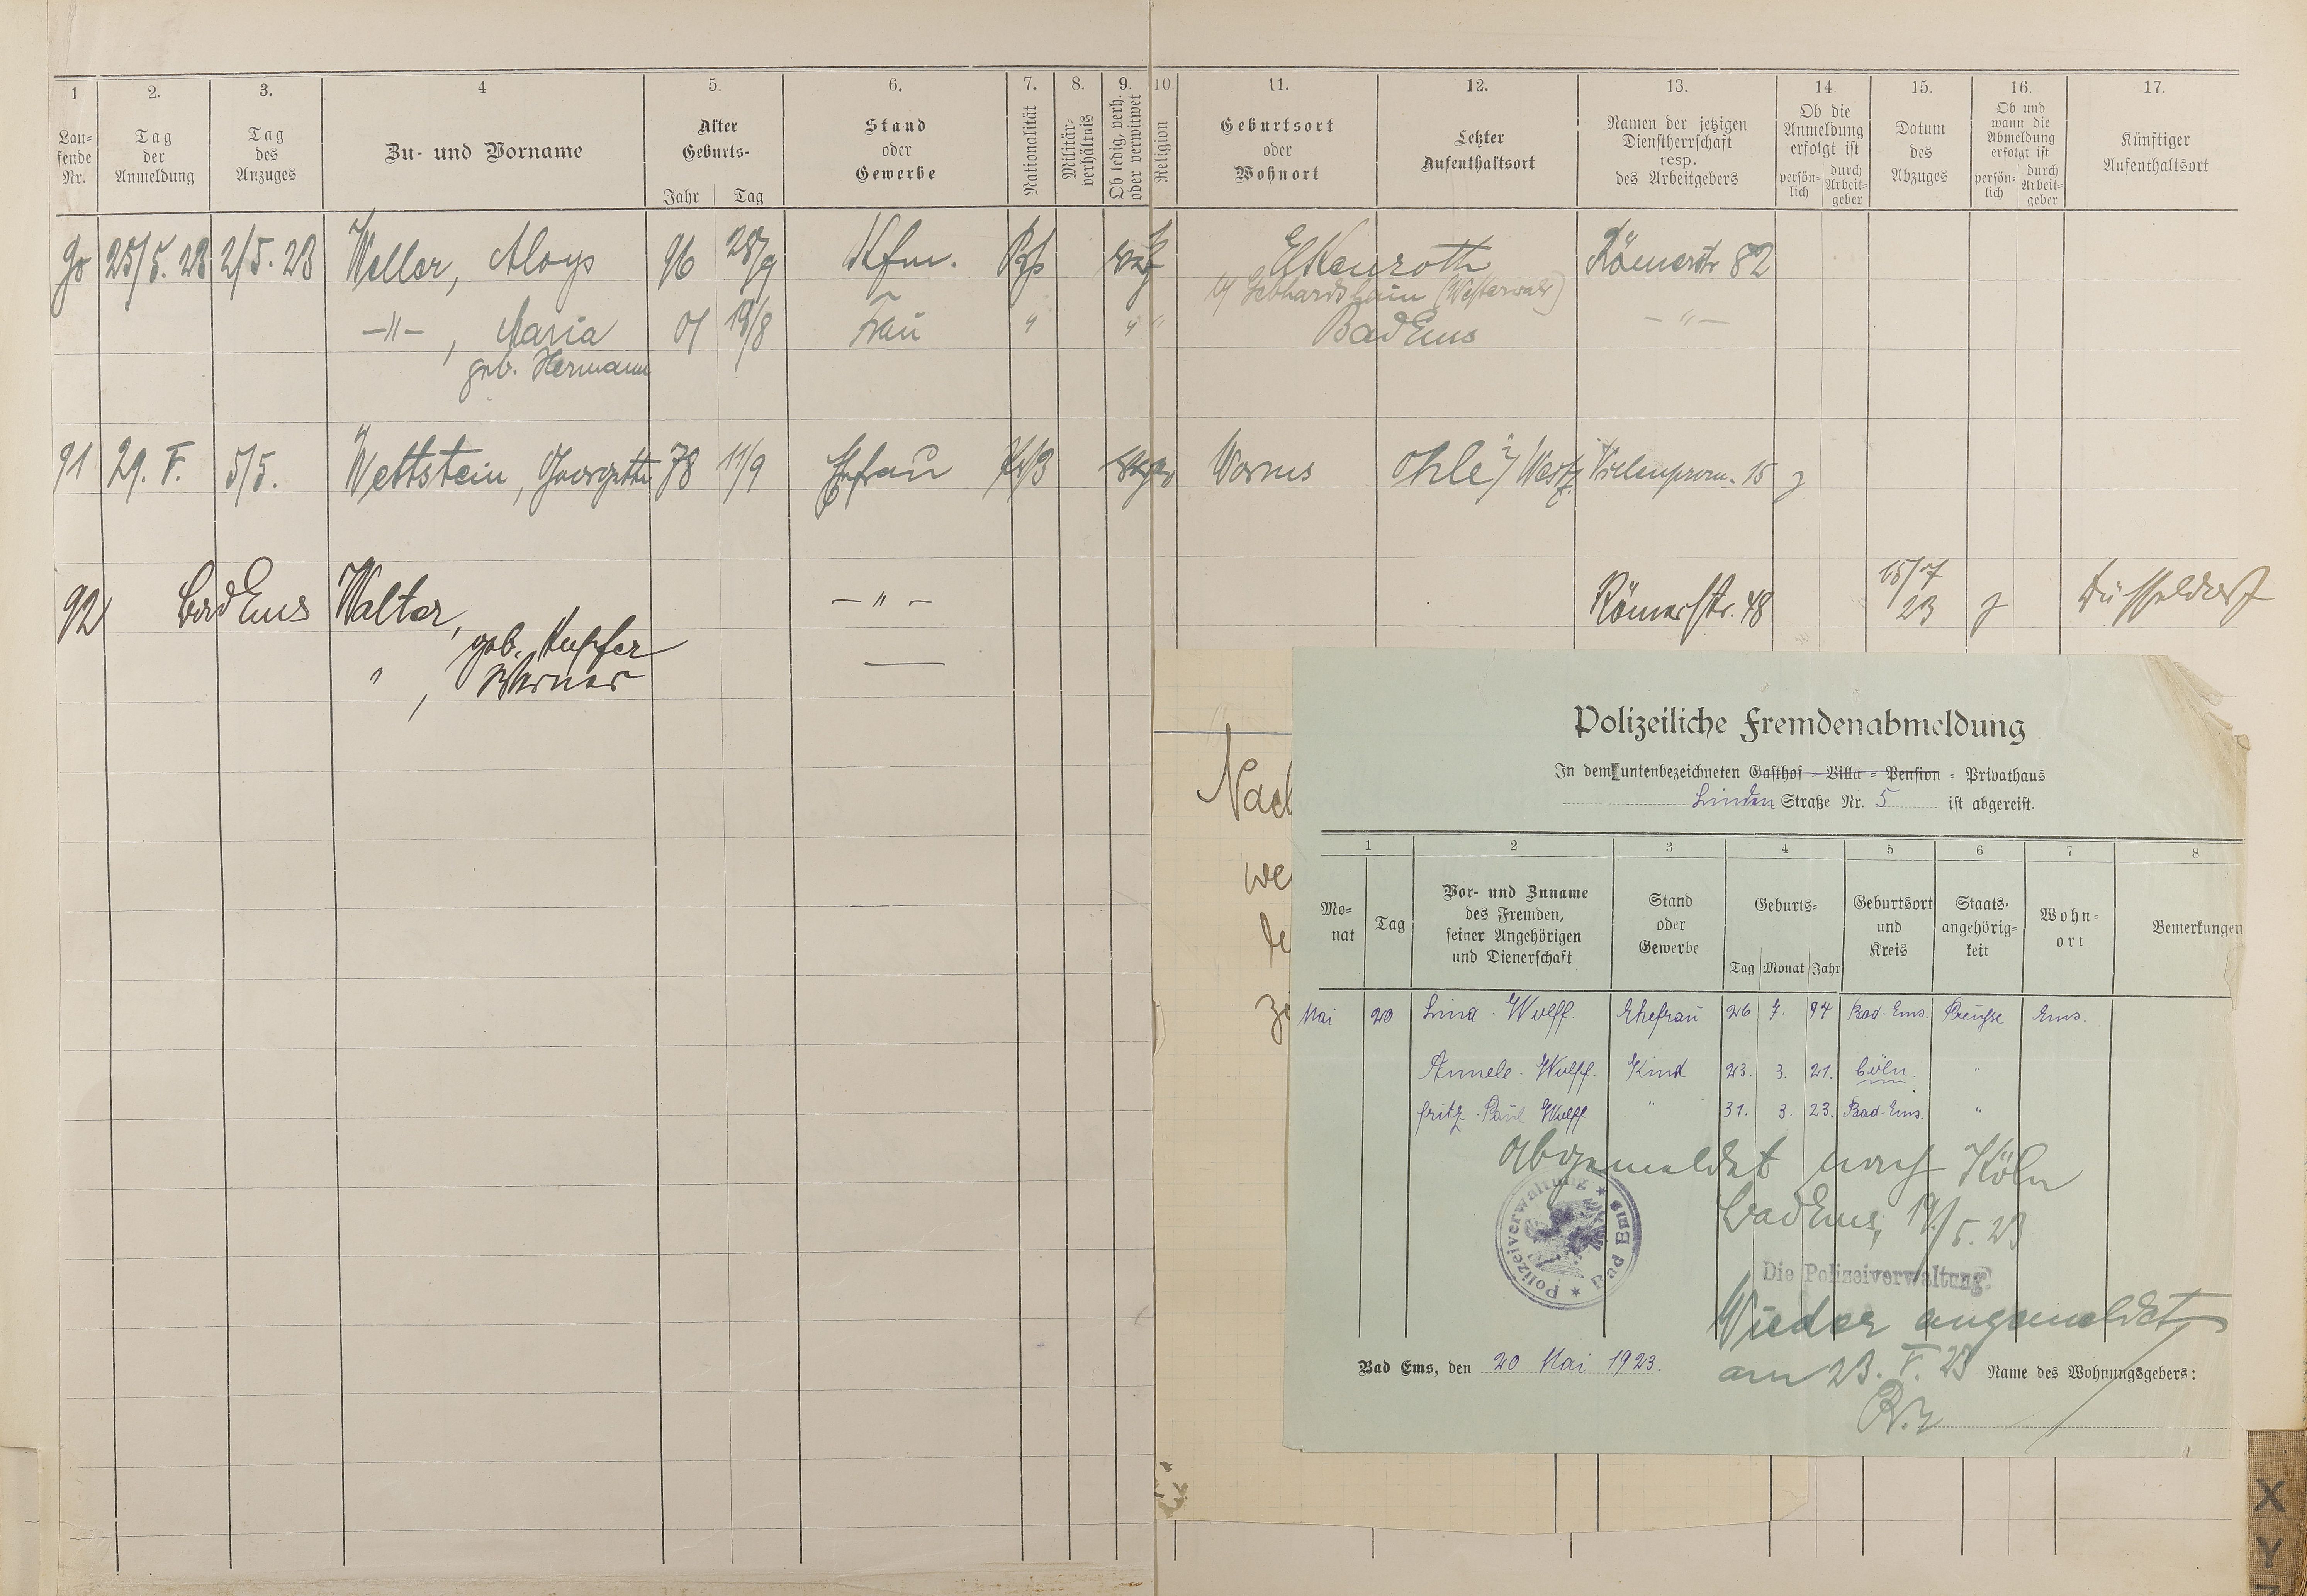 1 2. 3. 4 5. 6. 7. 8. 9. 10. 11. 12. 13. 14. 15. 16. 17.
Lau-
fende
Nr.
Tag
der
Anmeldung
Tag
des
Anzuges
Zu- und Vorname
Alter
Geburts-
Jahr Tag
Stand
oder
Gewerbe
Nationalität
Militär-
verhältnis
Ob ledig, verh.
oder verwitwet
Religion
Geburtsort
oder
Wohnort
Letzter
Aufenthaltsort
Namen der jetzigen
Dienstherrschaft
resp.
des Arbeitgebers
Ob die
Anmeldung
erfolgt ist
persön-
lich
durch
Arbeit-
geber
Datum
des
Abzuges
Ob und
wann die
Abmeldung
erfolgt ist
persön-
lich
durch
Arbeit-
geber
Künftiger
Aufenthaltsort
90 25/5. 23 2/5. 23 Weller, Aloys 96 28/9 Kfm. Elkenroth Römerstr 82
b/ Gebhardshain (Westerwald)
-"- , Maria 01 19/8 Frau " " " Bad Ems - " -
geb. Hermann
91 29. V. 5/5. Wettstein, Georgette 78 11/9 Ehefrau Worms Ohle i/ Westf. Villenprom. 15
92 Bad Ems Walter, - " - Römerstr. 48 15/7 23 Düsseldorf
geb. Kupfer
" , Werner
we
Polizeiliche Fremdenabmeldung
In dem untenbezeichneten Gasthof - Villa - Pension - Privathaus
Linden Straße Nr. 5 ist abgereist.
1 2 3 4 5 6 7 8
Mo-
nat
Tag
Vor- und Zuname
des Fremden,
seiner Angehörigen
und Dienerschaft
Stand
oder
Gewerbe
Geburts-
Tag Monat Jahr
Geburtsort
und
Kreis
Staats-
angehörig-
keit
Wohn-
ort
Bemerkungen
Mai 20 Lina Wolff. Ehefrau 26 7. 94 Bad-Ems. Preußse Ems.
Annele Wolff. Kind 23. 3. 21. Cöln. "
Fritz-Paul Wolff " 31. 3. 23. Bad-Ems. "
Abgemeldet nach Köln
Bad Ems, 19/5. 23
Polizeiverwaltung * Bad Ems *
Die Polizeiverwaltung
Wieder angemeldet
am 23. V. 23
Bad Ems, den 20 Mai 1923. Name des Wohnungsgebers:
X
Y